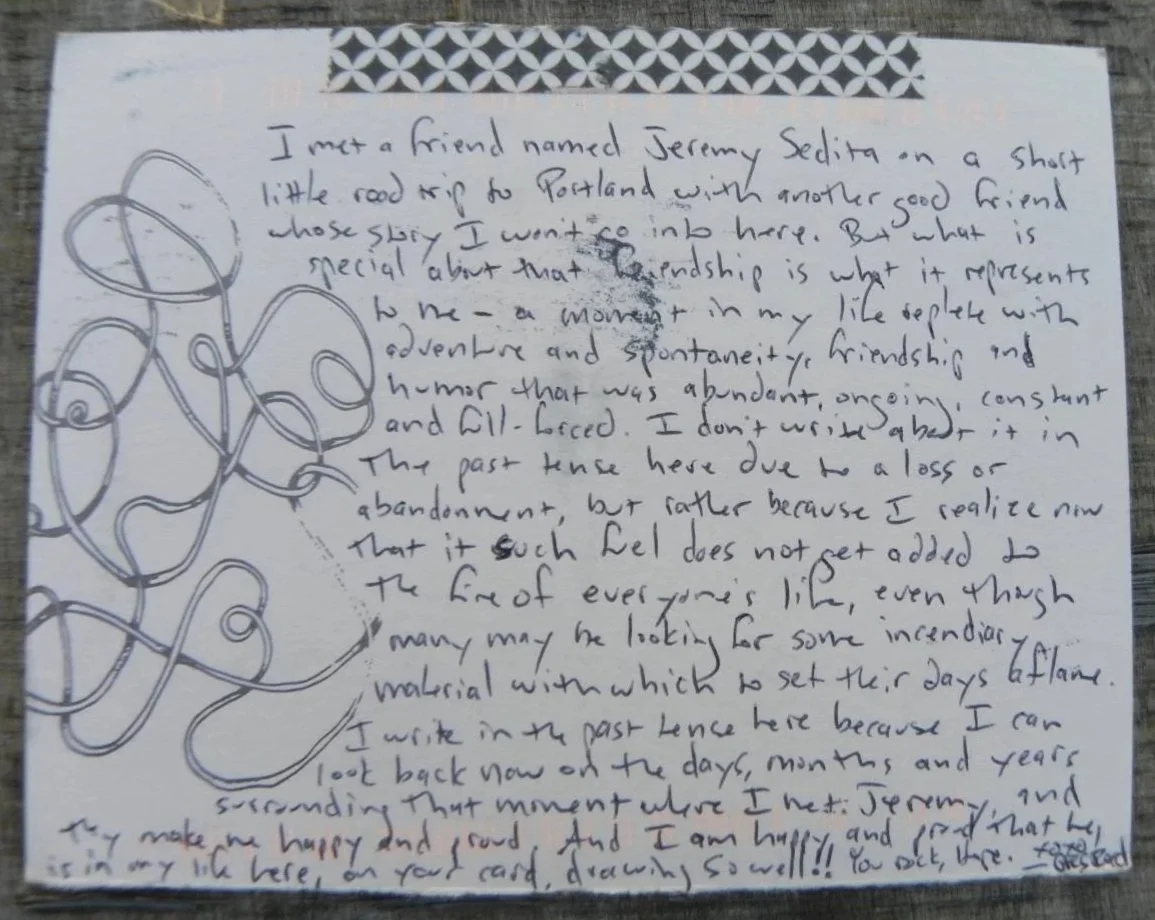 I met a friend named Jeremy Sedita on a short
little road trip to Portland with another good friend
whose story I won't go into here. But what is
special about that friendship is what it represents
to me – a moment in my life replete with
adventure and spontaneity, friendship and
humor that was abundant, ongoing, constant
and full-forced. I don't write about it in
the past tense here due to a loss or
abandonment, but rather because I realize now
that it such fuel does not get added to
the fire of everyone's life, even though
many may be looking for some incendiary
material with which to set their days aflame.
I write in the past tence here because I can
look back now on the days, months and years
surrounding that moment where I met Jeremy, and
they make me happy and proud. And I am happy and proud that he,
is in my life here, on your card, drawing so well!!! You rock, xoxo